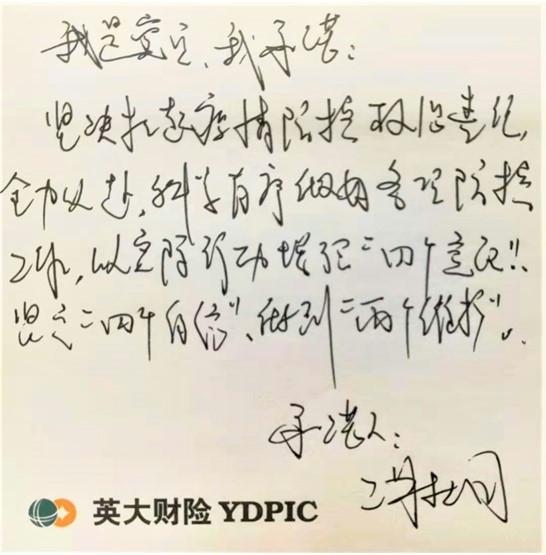 我是党员、我承诺：
坚决扛起疫情防控政治责任，
全力以赴，科学有序做好各项防控
工作，以实际行动增强“四个意识”、
坚定“四个自信”、做到“两个维护”。
承诺人：
英大财险 YDPIC